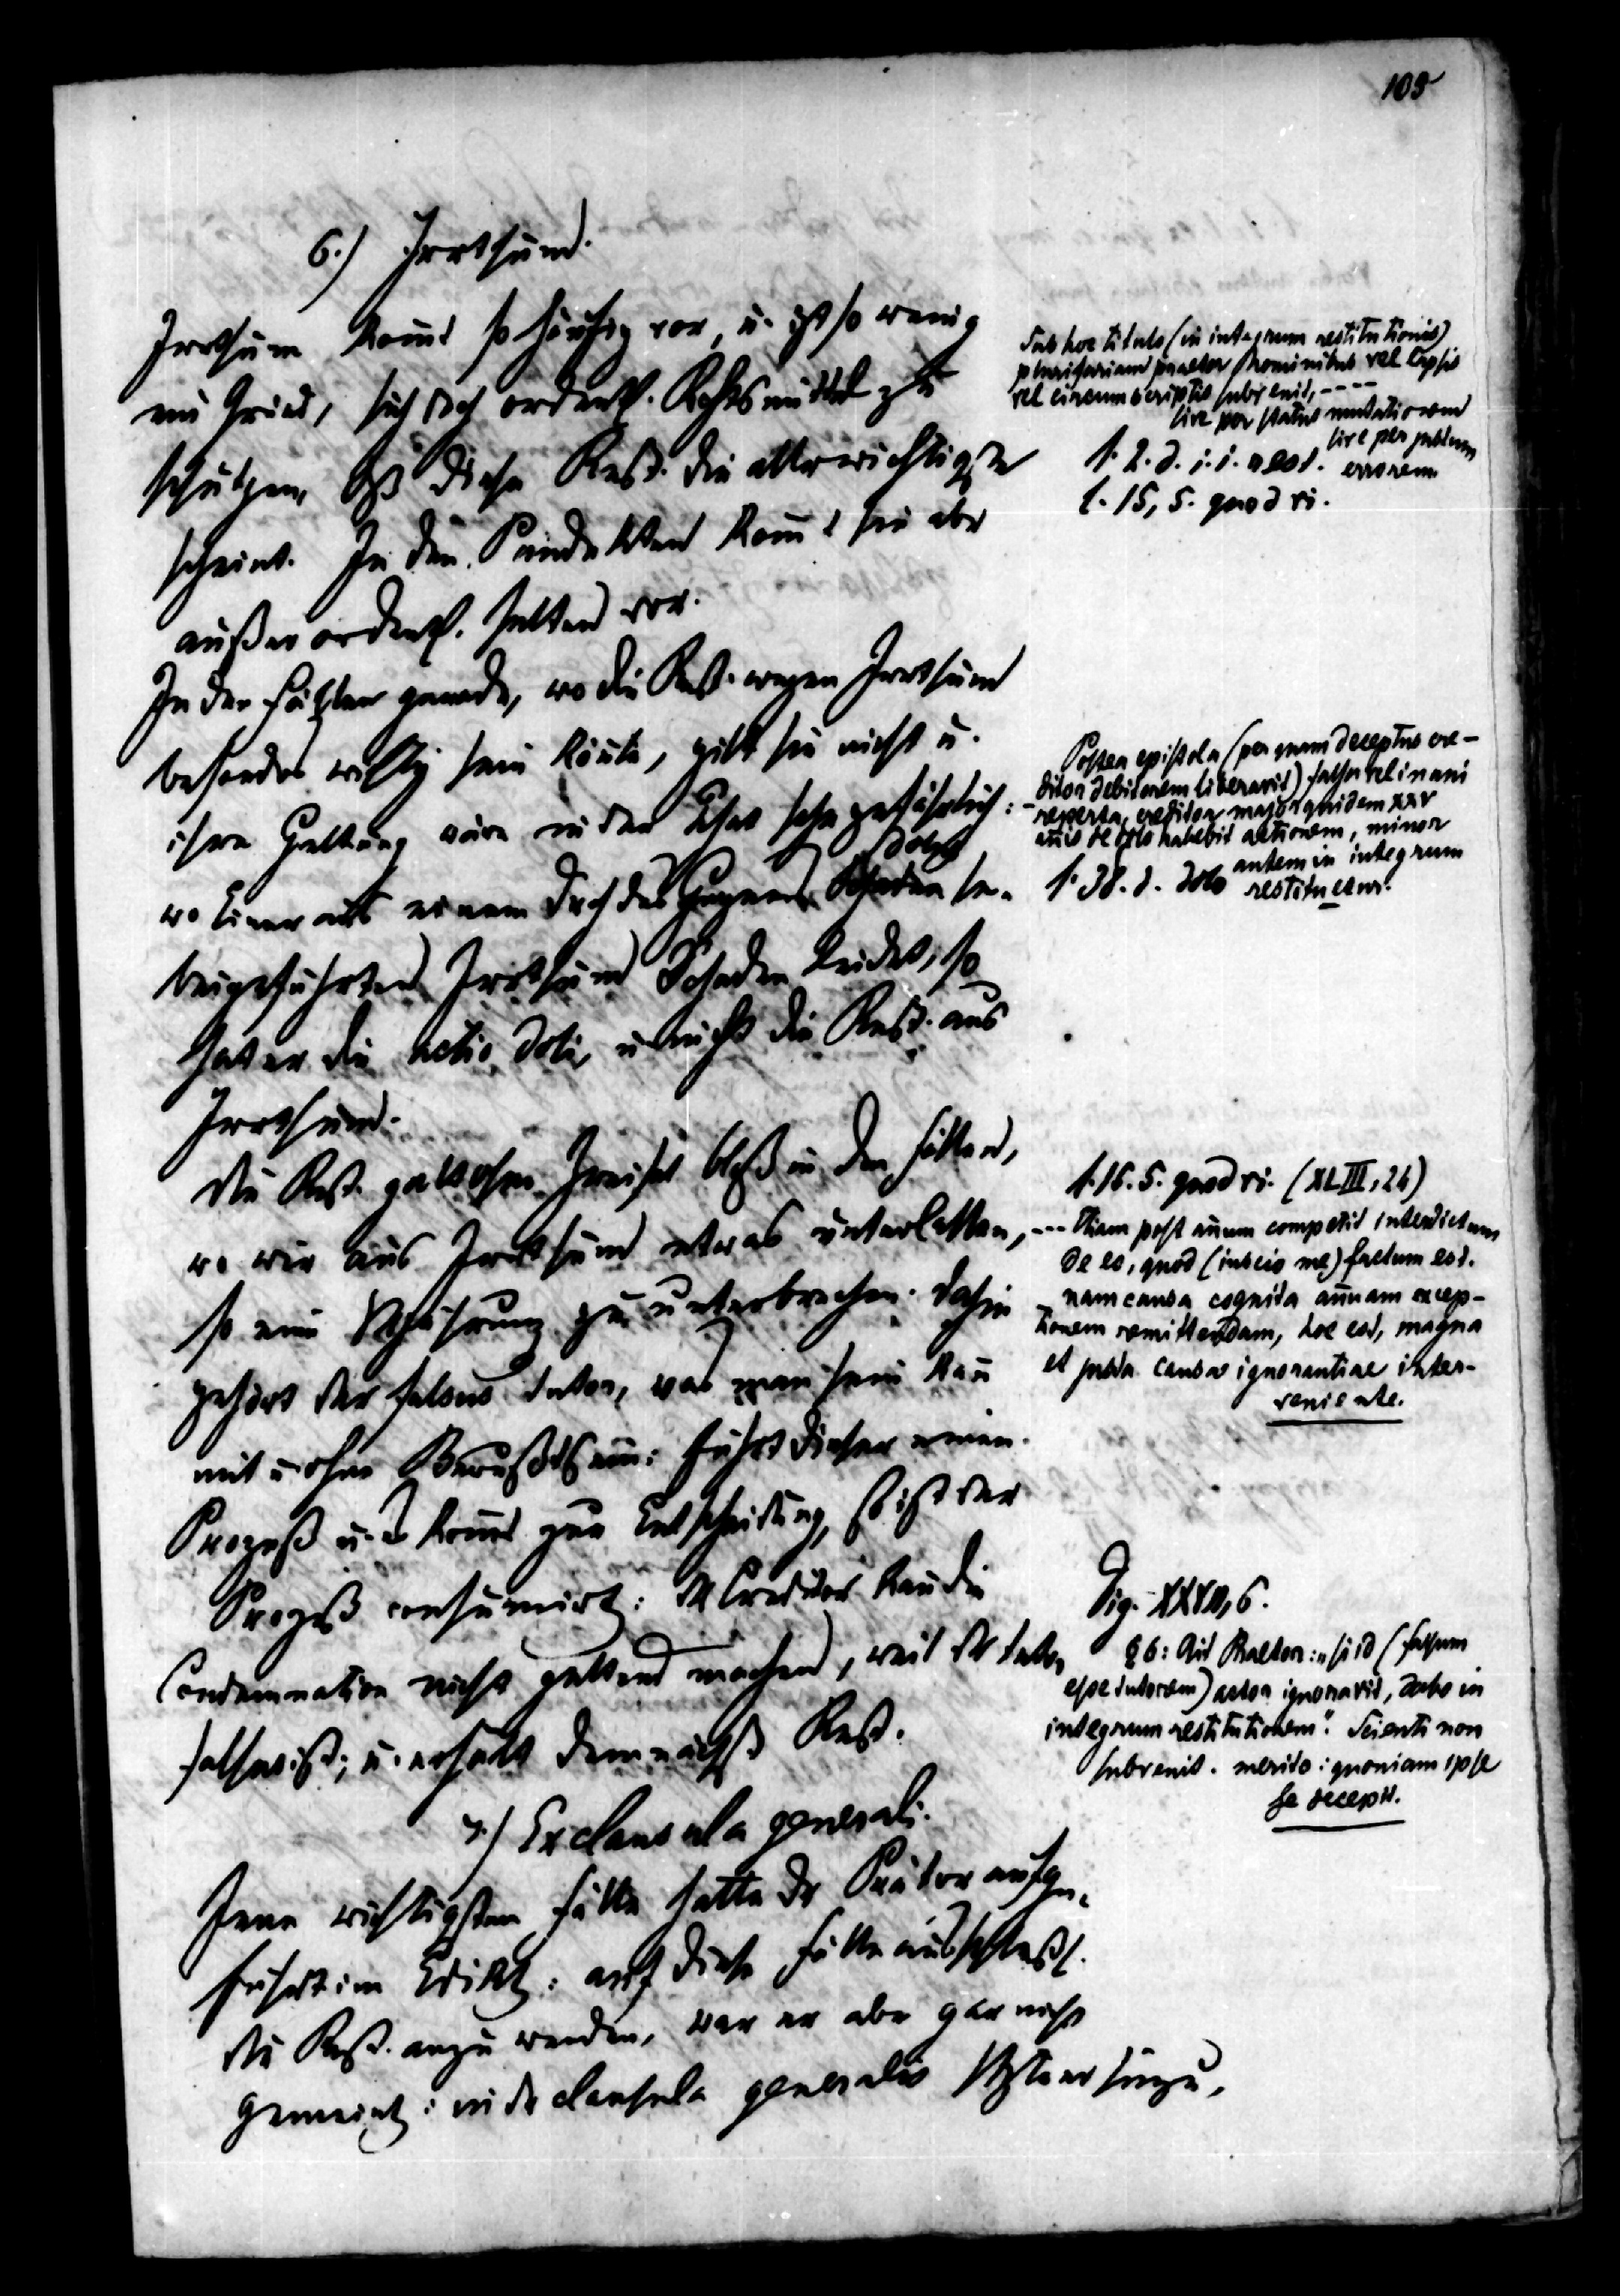 109
6.) Irrthum.
Irrthum kommt so häufig vor, u. ist so wenig
ein Grund, sich durch ordentl. Rechtsmittel zu
schützen, daß diese Rest. die allerwichtigste
scheint. In den Pandekten kommt sie aber
außerordentl. selten vor.
In den Fällen gerade, wo die Rest. wegen Irrthum
besonders wichtig sein könnte, gilt sie nicht u.
ihre Geltung wäre in der That sehr gefährlich:
wo Einer aus einem durch des Gegners dolus her-
beigeführten Irrthum Schaden leidet, so
hat er die actio doli, u. nicht die Rest. aus
Irrthum.
Die Rest. galt ohne Zweifel bloß in den Fällen,
wo wir aus Irrthum etwas unterlassen,
so eine Verjährung zu unterbrechen. Dahin
gehört der falsus tutor, was man sein kann
mit u. ohne Bewußtsein: führt dieser einen
Prozeß u. es kommt zur Entscheidung, so ist der
Prozeß consumirt: der Creditor kann die
Condemnation nicht geltend machen, weil der tutor
falsus ist; u. erhält demnächst Rest.
7.) Ex clausula generali.
Jene wichtigsten Fälle hatte der Prätor aufge-
führt im Edikt: auf diese Fälle ausschließl.
die Rest. anzuwenden, war er aber gar nicht
gemeint: in der clausula generalis setzte er hinzu,
Sub hoc titulo (in integrum restitutionis)
plurifariam praetor hominibus vel lapsis
vel circumscriptis subvenit, ----
sive per status mutationem
sive per justum
errorem.
l. 2. d. i. i. rest.
l. 15, 5. quod vi.
Postea epistola (per quam deceptus cre-
ditor debitorem liberavit) falsa vel inani
reperta, creditor major quidem XXV
annis de dolo habebit actionem, minor
autem in integrum
restituetur.
l. 38. d. dolo
l. 16. 5. quod vi. (XLIII, 24)
--- Etiam post annum competit interdictum
de eo, quod (inscio me) factum est.
nam causa cognita annuam excep-
tionem remittendam, hoc est, magna
et justa causa ignorantiae inter-
veniente.
Dig. XXVII, 6.
§ 6: Ait Praetor: „si id (falsum
esse tutorem) actor ignoravit, dabo in
integrum restitutionem". Scienti non
subvenit. merito: quoniam ipse
se decepit.